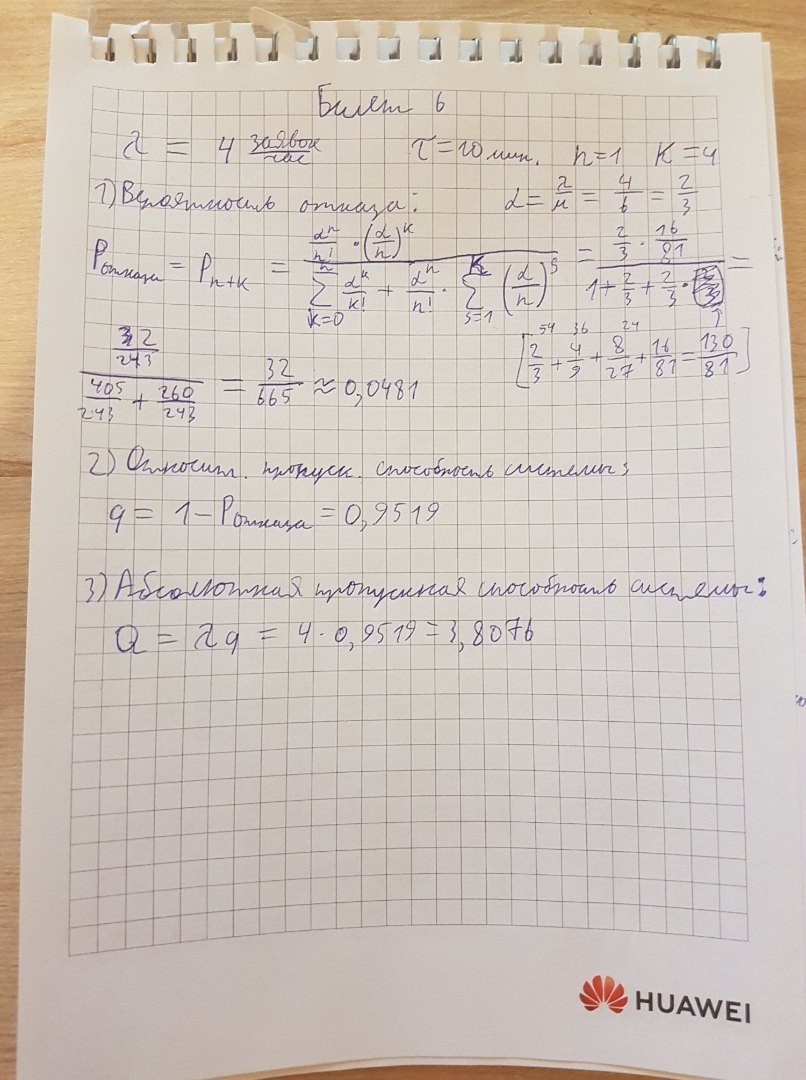 Билет 6
λ = 4 заявок/час τ = 10 мин. n=1 K=4
1) Вероятность отказа: α = λ/μ = 4/6 = 2/3
Pотказа = Pn+k = (α^n/n! · (α/n)^k) / (∑_{k=0}^{n} α^k/k! + α^n/n! · ∑_{s=1}^{K} (α/n)^s) = (2/3 · 16/81) / (1 + 2/3 + 2/3 · ) =
[2/3 + 4/9 + 8/27 + 16/81 = 130/81] 54 36 24
(32/243) / (405/243 + 260/243) = 32/665 ≈ 0,0481
2) Относит. пропуск. способность системы:
q = 1 - Pотказа = 0,9519
3) Абсолютная пропускная способность системы:
Q = λq = 4 · 0,9519 = 3,8076
HUAWEI